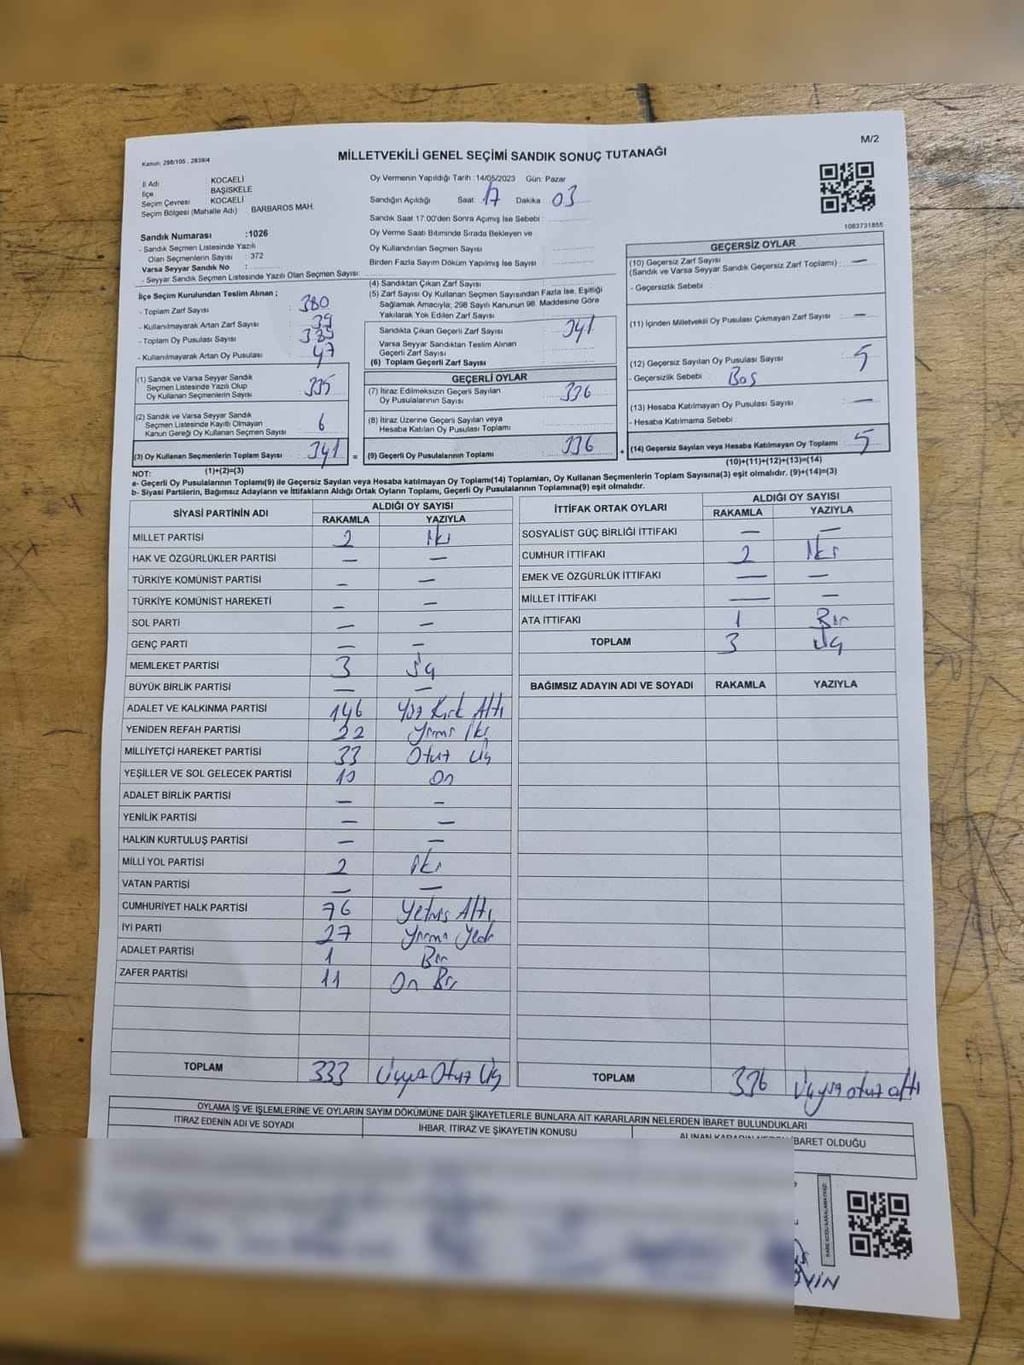 M/2
Kanun: 298/105 , 2839/4
MİLLETVEKİLİ GENEL SEÇİMİ SANDIK SONUÇ TUTANAĞI
İl Adı : KOCAELİ
İlçe : BAŞİSKELE
Seçim Çevresi : KOCAELİ
Seçim Bölgesi (Mahalle Adı) : BARBAROS MAH.
Sandık Numarası :1026
- Sandık Seçmen Listesinde Yazılı
Olan Seçmenlerin Sayısı : 372
Varsa Seyyar Sandık No :
- Seyyar Sandık Seçmen Listesinde Yazılı Olan Seçmen Sayısı:
Oy Vermenin Yapıldığı Tarih :14/05/2023 Gün: Pazar
Sandığın Açıldığı Saat: 17 Dakika 03
Sandık Saat 17:00'den Sonra Açımış İse Sebebi :
Oy Verme Saati Bitiminde Sırada Bekleyen ve
Oy Kullandırılan Seçmen Sayısı :
Birden Fazla Sayım Döküm Yapılmış İse Sayısı :
1083731855
İlçe Seçim Kurulundan Teslim Alınan ;
- Toplam Zarf Sayısı : 380
- Kullanılmayarak Artan Zarf Sayısı : 39
- Toplam Oy Pusulası Sayısı :
- Kullanılmayarak Artan Oy Pusulası : 47
(1) Sandık ve Varsa Seyyar Sandık
Seçmen Listesinde Yazılı Olup
Oy Kullanan Seçmenlerin Sayısı 335
(2) Sandık ve Varsa Seyyar Sandık
Seçmen Listesinde Kayıtlı Olmayan
Kanun Gereği Oy Kullanan Seçmen Sayısı 6
(3) Oy Kullanan Seçmenlerin Toplam Sayısı 341 =
(4) Sandıktan Çıkan Zarf Sayısı :
(5) Zarf Sayısı Oy Kullanan Seçmen Sayısından Fazla İse, Eşitliği
Sağlamak Amacıyla; 298 Sayılı Kanunun 98. Maddesine Göre
Yakılarak Yok Edilen Zarf Sayısı
Sandıkta Çıkan Geçerli Zarf Sayısı : 341
Varsa Seyyar Sandıktan Teslim Alınan
Geçerli Zarf Sayısı
(6) Toplam Geçerli Zarf Sayısı
GEÇERLİ OYLAR
(7) İtiraz Edilmeksizin Geçerli Sayılan
Oy Pusulalarının Sayısı : 336
(8) İtiraz Üzerine Geçerli Sayılan veya
Hesaba Katılan Oy Pusulaları Toplamı
(9) Geçerli Oy Pusulalarının Toplamı : 336 +
GEÇERSİZ OYLAR
(10) Geçersiz Zarf Sayısı : —
(Sandık ve Varsa Seyyar Sandık Geçersiz Zarf Toplamı)
- Geçersizlik Sebebi
(11) İçinden Milletvekili Oy Pusulası Çıkmayan Zarf Sayısı : —
(12) Geçersiz Sayılan Oy Pusulası Sayısı : 5
- Geçersizlik Sebebi : Boş
(13) Hesaba Katılmayan Oy Pusulası Sayısı : —
- Hesaba Katılmama Sebebi :
(14) Geçersiz Sayılan veya Hesaba Katılmayan Oy Toplamı : 5
NOT: (1)+(2)=(3)
(10)+(11)+(12)+(13)=(14)
a- Geçerli Oy Pusulalarının Toplamı(9) ile Geçersiz Sayılan veya Hesaba katılmayan Oy Toplamı(14) Toplamları, Oy Kullanan Seçmenlerin Toplam Sayısına(3) eşit olmalıdır. (9)+(14)=(3)
b- Siyasi Partilerin, Bağımsız Adayların ve İttifakların Aldığı Ortak Oyların Toplamı, Geçerli Oy Pusulalarının Toplamına(9) eşit olmalıdır.
SİYASİ PARTİNİN ADI ALDIĞI OY SAYISI
RAKAMLA YAZIYLA
MİLLET PARTİSİ 2 İki
HAK VE ÖZGÜRLÜKLER PARTİSİ — —
TÜRKİYE KOMÜNİST PARTİSİ — —
TÜRKİYE KOMÜNİST HAREKETİ — —
SOL PARTİ — —
GENÇ PARTİ — —
MEMLEKET PARTİSİ 3 üç
BÜYÜK BİRLİK PARTİSİ — —
ADALET VE KALKINMA PARTİSİ 146 Yüz Kırk Altı
YENİDEN REFAH PARTİSİ 22 Yirmi İki
MİLLİYETÇİ HAREKET PARTİSİ 33 Otuz Üç
YEŞİLLER VE SOL GELECEK PARTİSİ 10 On
ADALET BİRLİK PARTİSİ — —
YENİLİK PARTİSİ — —
HALKIN KURTULUŞ PARTİSİ — —
MİLLİ YOL PARTİSİ 2 İki
VATAN PARTİSİ — —
CUMHURİYET HALK PARTİSİ 76 Yetmiş Altı
İYİ PARTİ 27 Yirmi Yedi
ADALET PARTİSİ 1 Bir
ZAFER PARTİSİ 11 On Bir
TOPLAM 333 Üçyüz Otuz Üç
İTTİFAK ORTAK OYLARI ALDIĞI OY SAYISI
RAKAMLA YAZIYLA
SOSYALİST GÜÇ BİRLİĞİ İTTİFAKI — —
CUMHUR İTTİFAKI 2 İki
EMEK VE ÖZGÜRLÜK İTTİFAKI — —
MİLLET İTTİFAKI — —
ATA İTTİFAKI 1 Bir
TOPLAM 3 Üç
BAĞIMSIZ ADAYIN ADI VE SOYADI RAKAMLA YAZIYLA
TOPLAM 336 Üçyüz otuz altı
OYLAMA İŞ VE İŞLEMLERİNE VE OYLARIN SAYIM DÖKÜMÜNE DAİR ŞİKAYETLERLE BUNLARA AİT KARARLARIN NELERDEN İBARET BULUNDUKLARI
İTİRAZ EDENİN ADI VE SOYADI İHBAR, İTİRAZ VE ŞİKAYETİN KONUSU ALINAN KARARIN NEDEN İBARET OLDUĞU